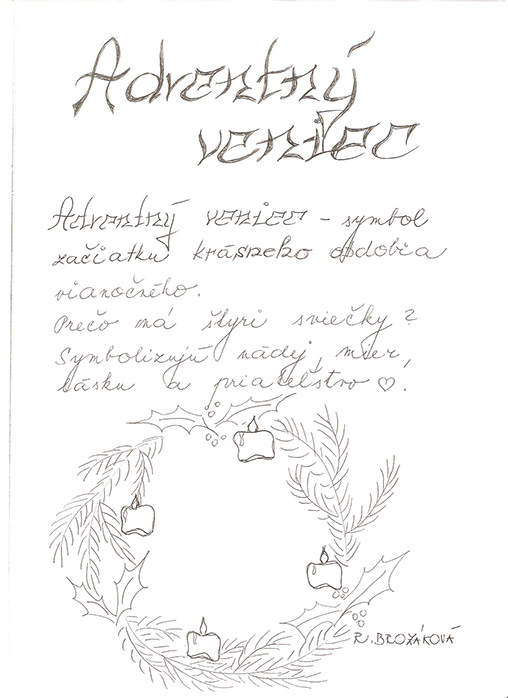 Adventný
veniec
Adventný veniec - symbol
začiatku krásneho obdobia
vianočného.
Prečo má štyri sviečky?
Symbolizujú nádej, mier,
lásku a priateľstvo ♡!
R. BROZÁKOVÁ